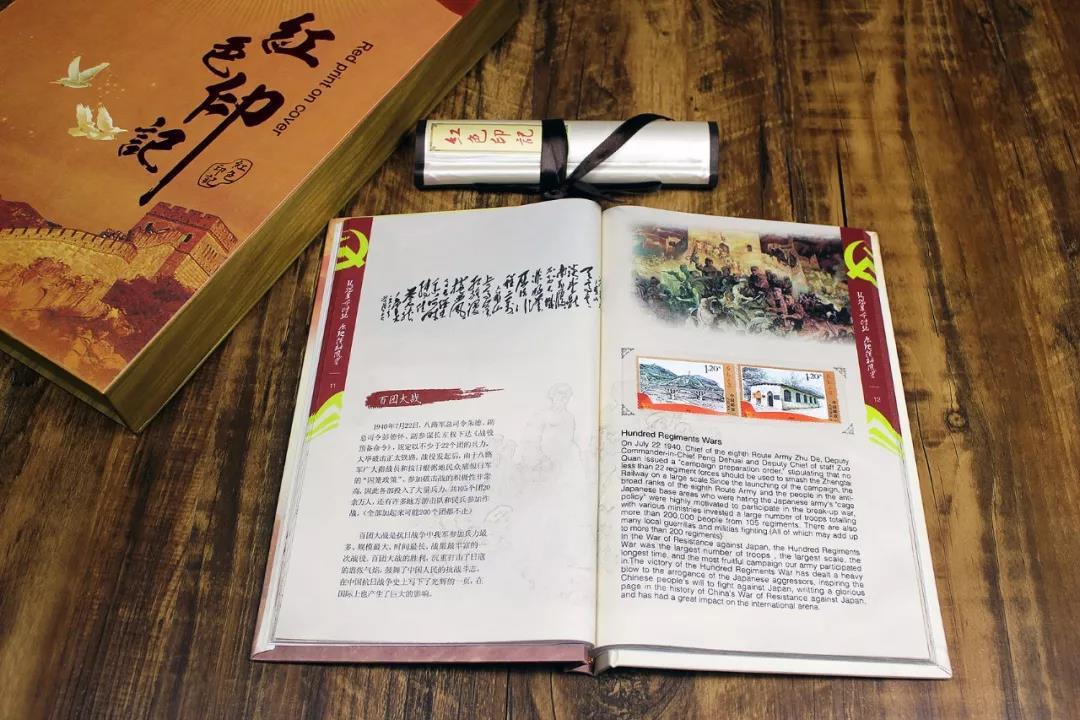 红色印記
Red print on cover
红色
印記
红色印記
11
百团大战
1940年7月22日,八路军总司令朱德、副
总司令彭德怀、副参谋长左权下达《战役
预备命令》,规定以不少于22个团的兵力,
大举破击正太铁路。战役发起后,由于八路
军广大指战员和抗日根据地民众痛恨日军
的“囚笼政策”,参加破击战的积极性非常
高,因此各部投入了大量兵力,共105个团20
余万人,还有许多地方游击队和民兵参加作
战。(全部加起来可能200个团都不止)
百团大战是抗日战争中我军参加兵力最
多、规模最大、时间最长、战果最丰富的一
次战役。百团大战的胜利,沉重打击了日寇
的嚣张气焰,鼓舞了中国人民的抗战斗志,
在中国抗日战争史上写下了光辉的一页,在
国际上也产生了巨大的影响。
12
1.20
1.20
Hundred Regiments Wars
On July 22 1940, Chief of the eighth Route Army Zhu De, Deputy
Commander-in-Chief Peng Dehuai and Deputy Chief of staff Zuo
Quan issued a "campaign preparation order," stipulating that no
less than 22 regiment forces should be used to smash the Zhengtai
Railway on a large scale.Since the launching of the campaign, the
broad ranks of the eighth Route Army and the people in the anti-
Japanese base areas who were hating the Japanese army's "cage
policy" were highly motivated to participate in the break-up war,
with various ministries invested a large number of troops totalling
more than 200,000 people from 105 regiments. There are also
many local guerrillas and militias fighting.(All of which may add up
to more than 200 regiments)
In the War of Resistance against Japan, the Hundred Regiments
War was the largest number of troops , the largest scale, the
longest time, and the most fruitful campaign our army participated
in.The victory of the Hundred Regiments War has dealt a heavy
blow to the arrogance of the Japanese aggressors, inspiring the
Chinese people's will to fight against Japan, writting a glorious
page in the history of China's War of Resistance against Japan,
and has had a great impact on the international arena.